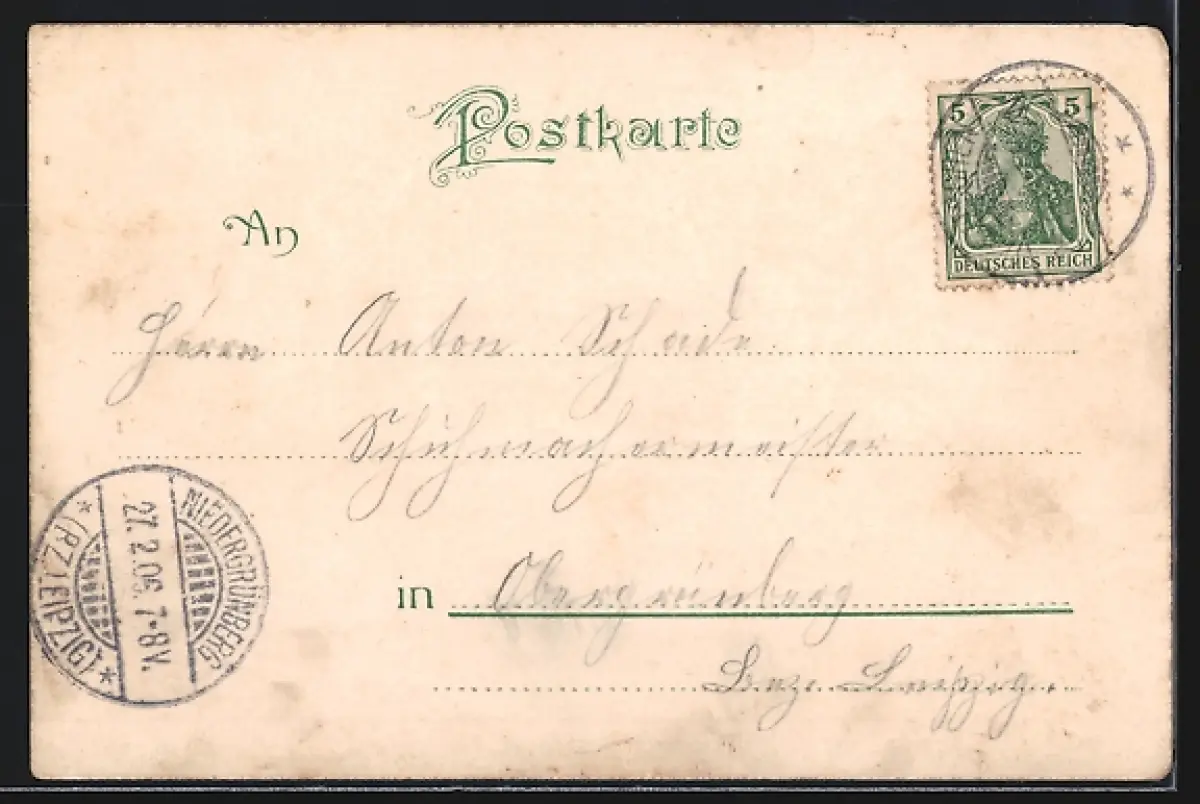 Postkarte
An
5 5
DEUTSCHES REICH
Herrn Anton Schade
Schuhmachermeister
in Obergrünberg
Bez. Leipzig.
NIEDERGRÜNBERG
27.2.06. 7-8V.
* (BZ. LEIPZIG) **